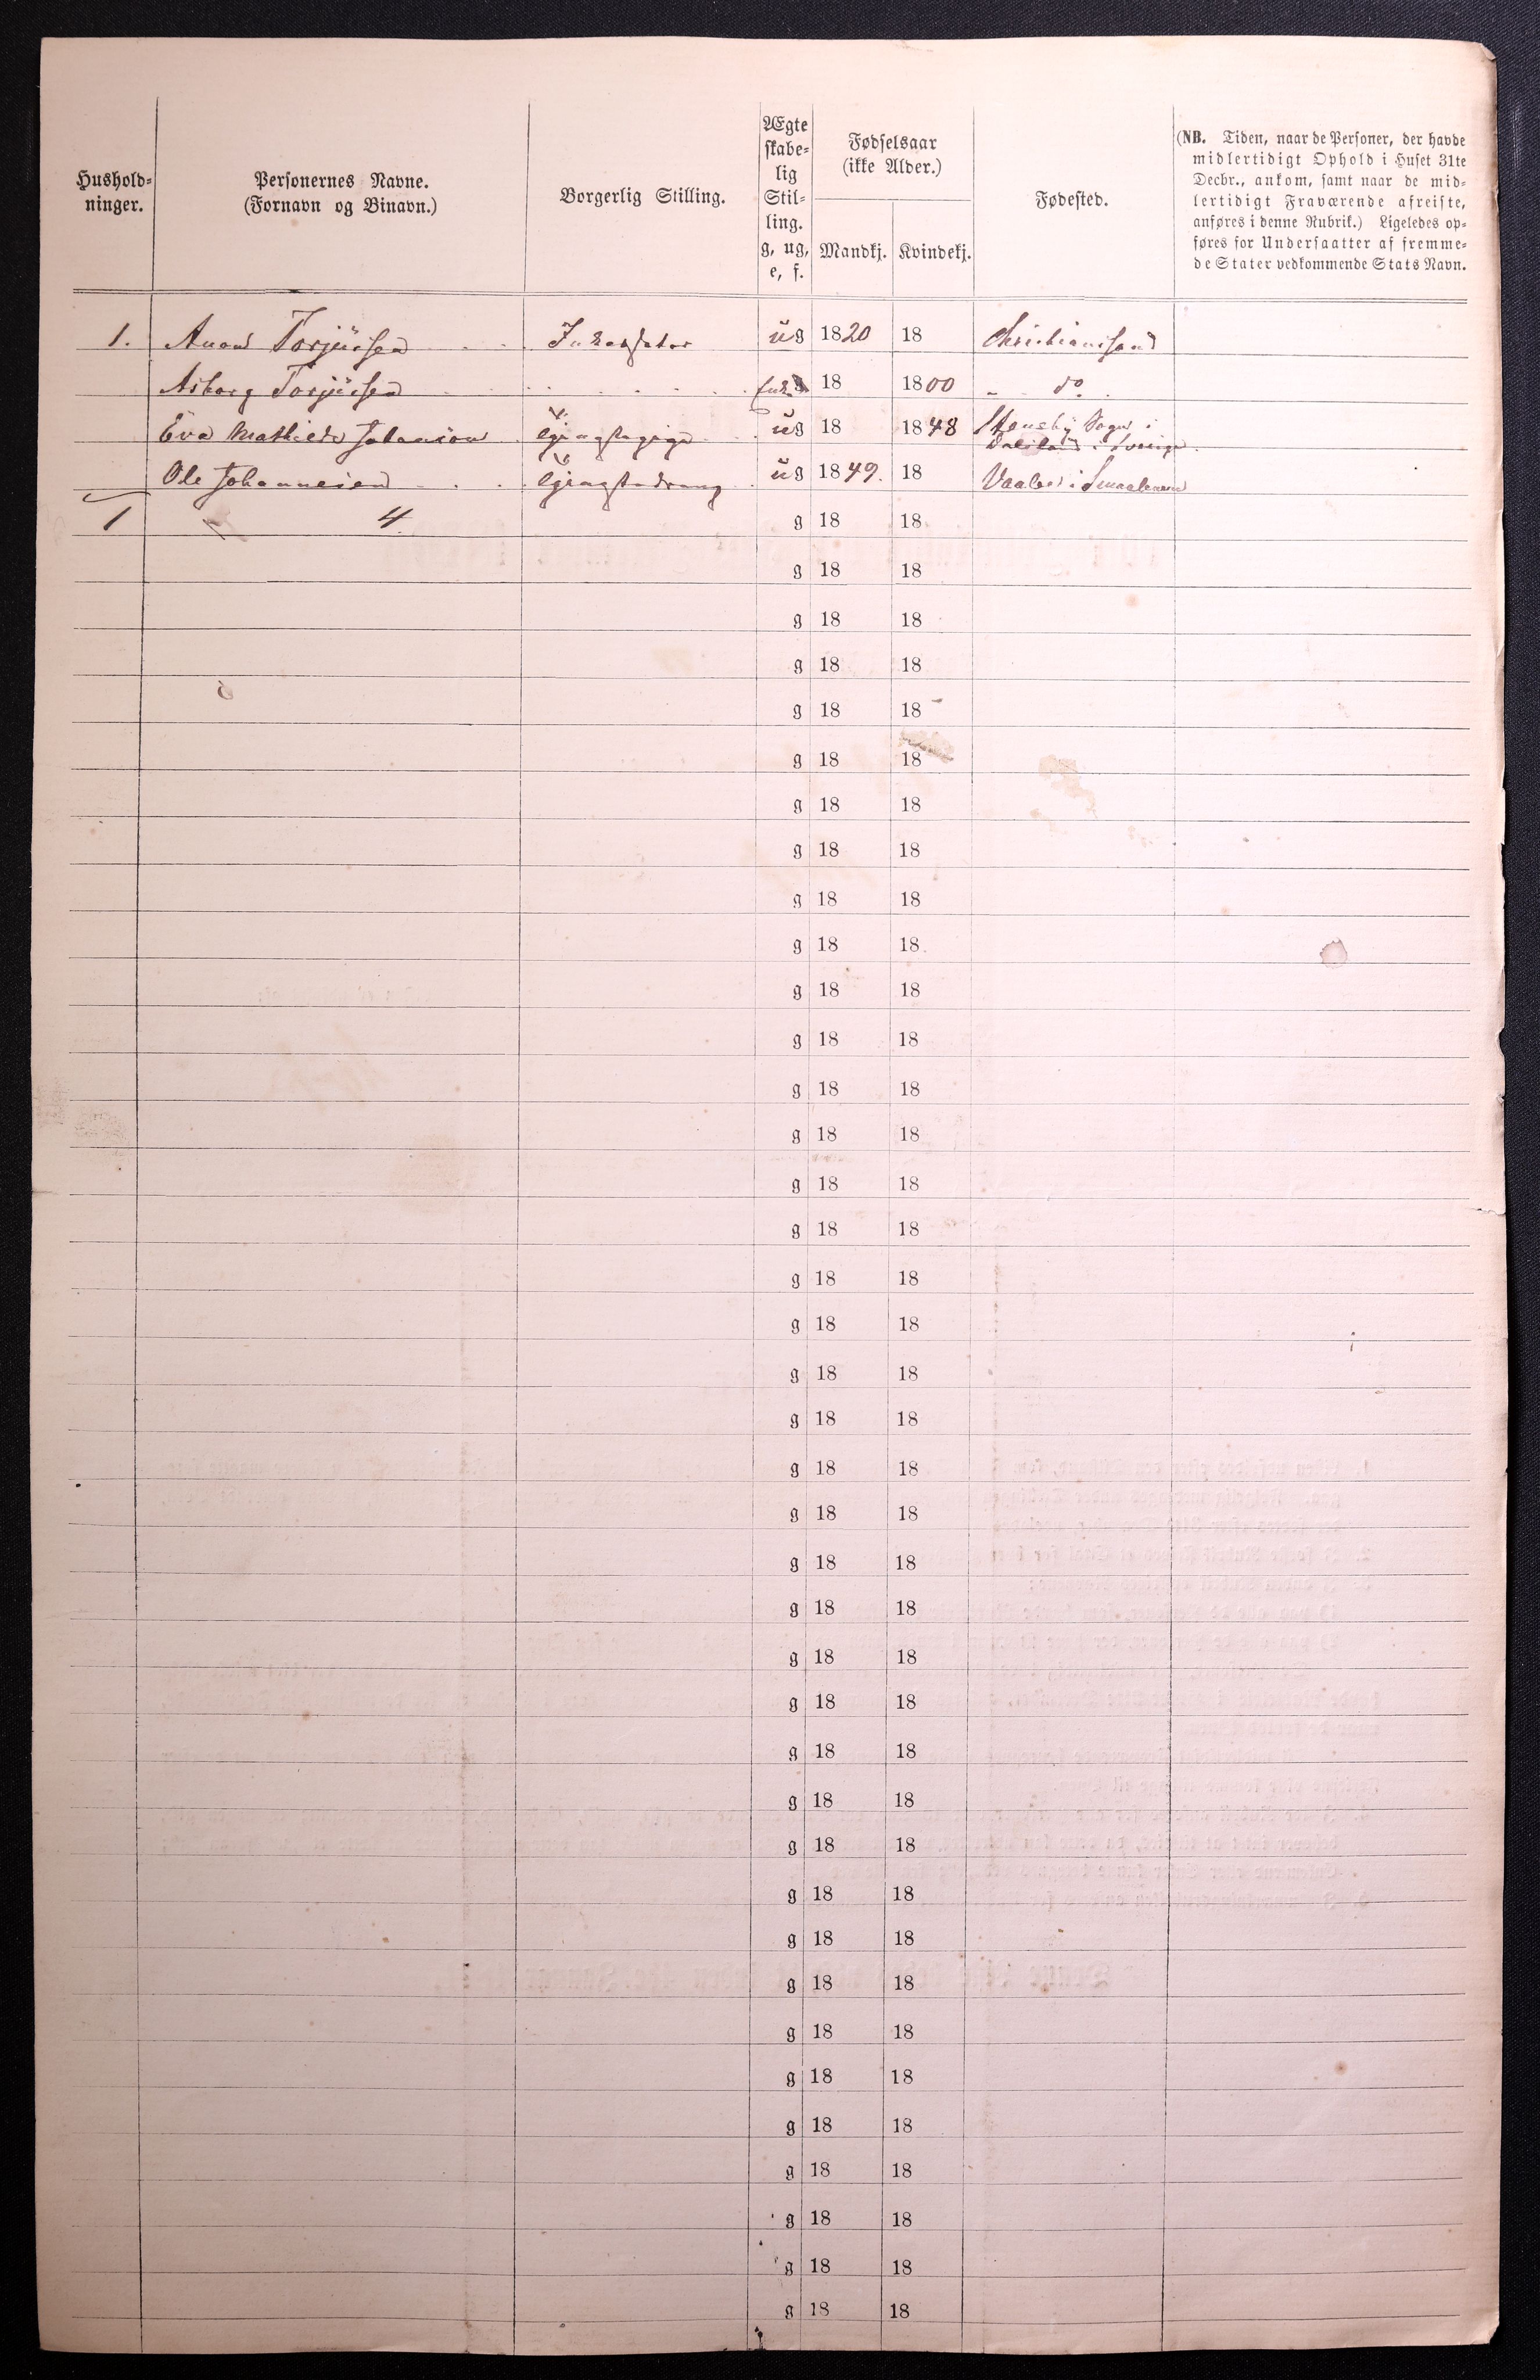 Hushold-
ninger.
Personernes Navne.
(Fornavn og Binavn.)
Borgerlig Stilling.
Ægte
skabe-
lig
Stil-
ling.
g, ug,
e, f.
Fødselsaar
(ikke Alder.)
Mandkj. Kvindekj.
Fødested.
(NB. Tiden, naar de Personer, der havde
midlertidigt Ophold i Huset 31te
Decbr., ankom, samt naar de mid-
lertidigt Fraværende afreiste,
anføres i denne Rubrik.) Ligeledes op-
føres for Undersaatter af fremme-
de Stater vedkommende Stats Navn.
1. Torjüssen ug 1820 18 Christianssand
Asborg Torjüssen 18 1800 do
Eva Mathilde ug 18 1848 Sogn i
Ole Johannesen ug 1849. 18 Vaaler i Smaalenene
1 4 g 18 18
g 18 18
g 18 18
g 18 18
g 18 18
g 18 18
g 18 18
g 18 18
g 18 18
g 18 18
g 18 18
g 18 18
g 18 18
g 18 18
g 18 18
g 18 18
g 18 18
g 18 18
g 18 18
g 18 18
g 18 18
g 18 18
g 18 18
g 18 18
g 18 18
g 18 18
g 18 18
g 18 18
g 18 18
g 18 18
g 18 18
g 18 18
g 18 18
g 18 18
g 18 18
g 18 18
g 18 18
g 18 18
g 18 18